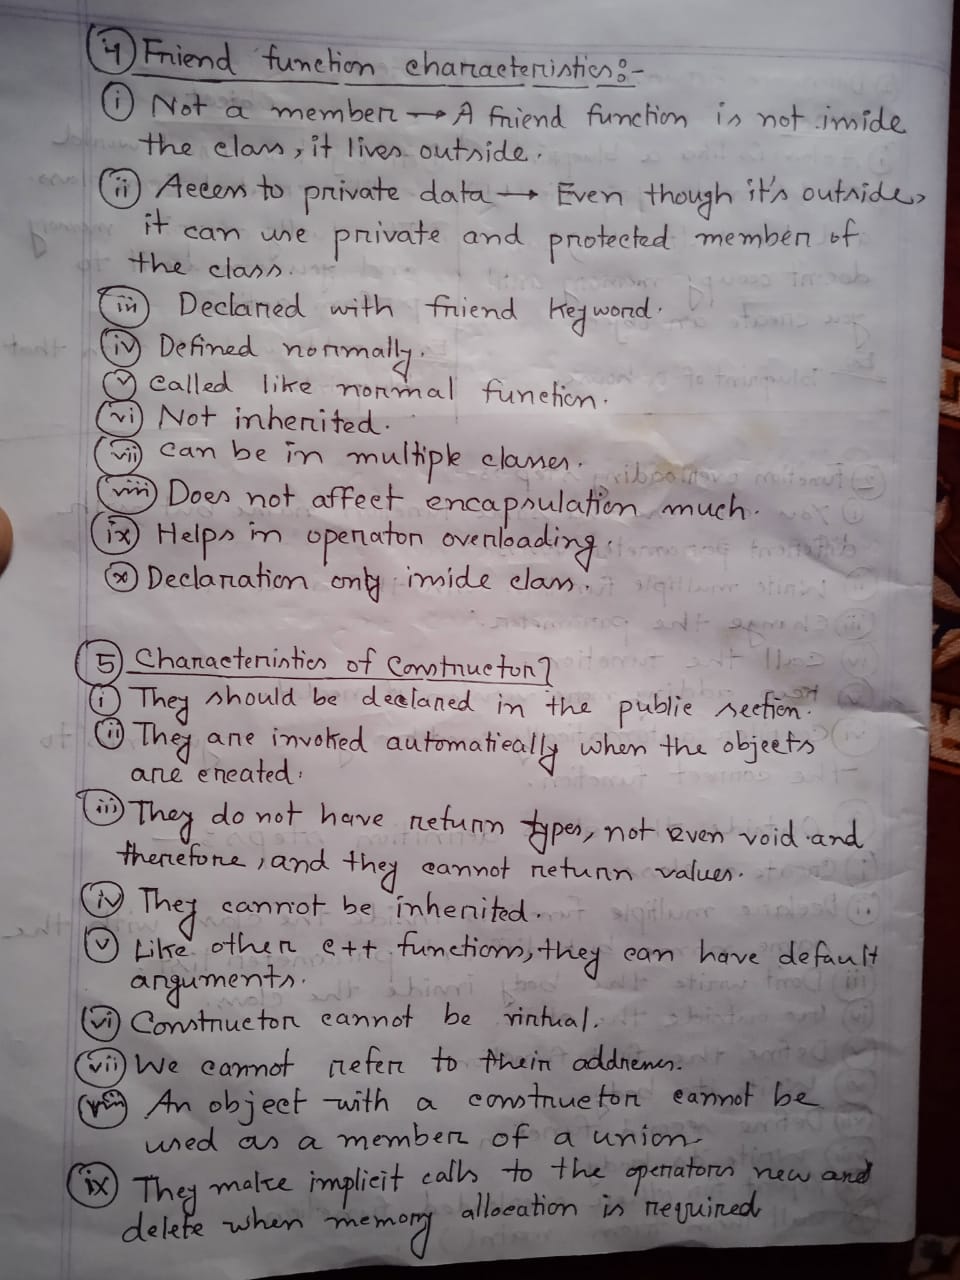 4 Friend function characteristics:-
i Not a member → A friend function is not inside
the class, it lives outside.
ii Access to private data → Even though it's outside,
it can use private and protected member of
the class.
iii Declared with friend keyword.
iv Defined normally.
v Called like normal function.
vi Not inherited.
vii Can be in multiple classes.
viii Does not affect encapsulation much.
ix Helps in operator overloading.
x Declaration only inside class.
5 Characteristics of Constructor?
i They should be declared in the public section.
ii They are invoked automatically when the objects
are created.
iii They do not have return types, not even void and
therefore, and they cannot return values.
iv They cannot be inherited.
v Like other c++ functions, they can have default
arguments.
vi Constructor cannot be virtual.
vii We cannot refer to their addresses.
viii An object with a constructor cannot be
used as a member of a union.
ix They make implicit calls to the operators new and
delete when memory allocation is required